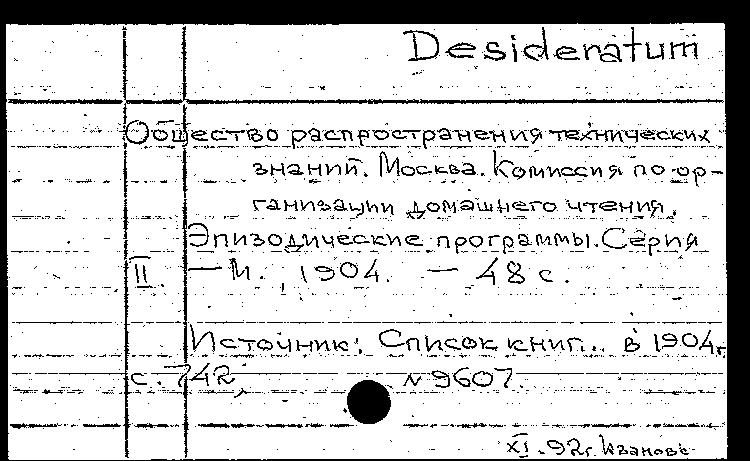 Desideratum
Общество распространения технических
знаний. Москва. Комиссия по ор-
ганизации домашнего чтения.
Эпизодические программы. Серия
II. — М., 1904. — 48 с.
Источник: Список книг... в 1904г.
с. 742, N 9607.
XI.92г. Иванова